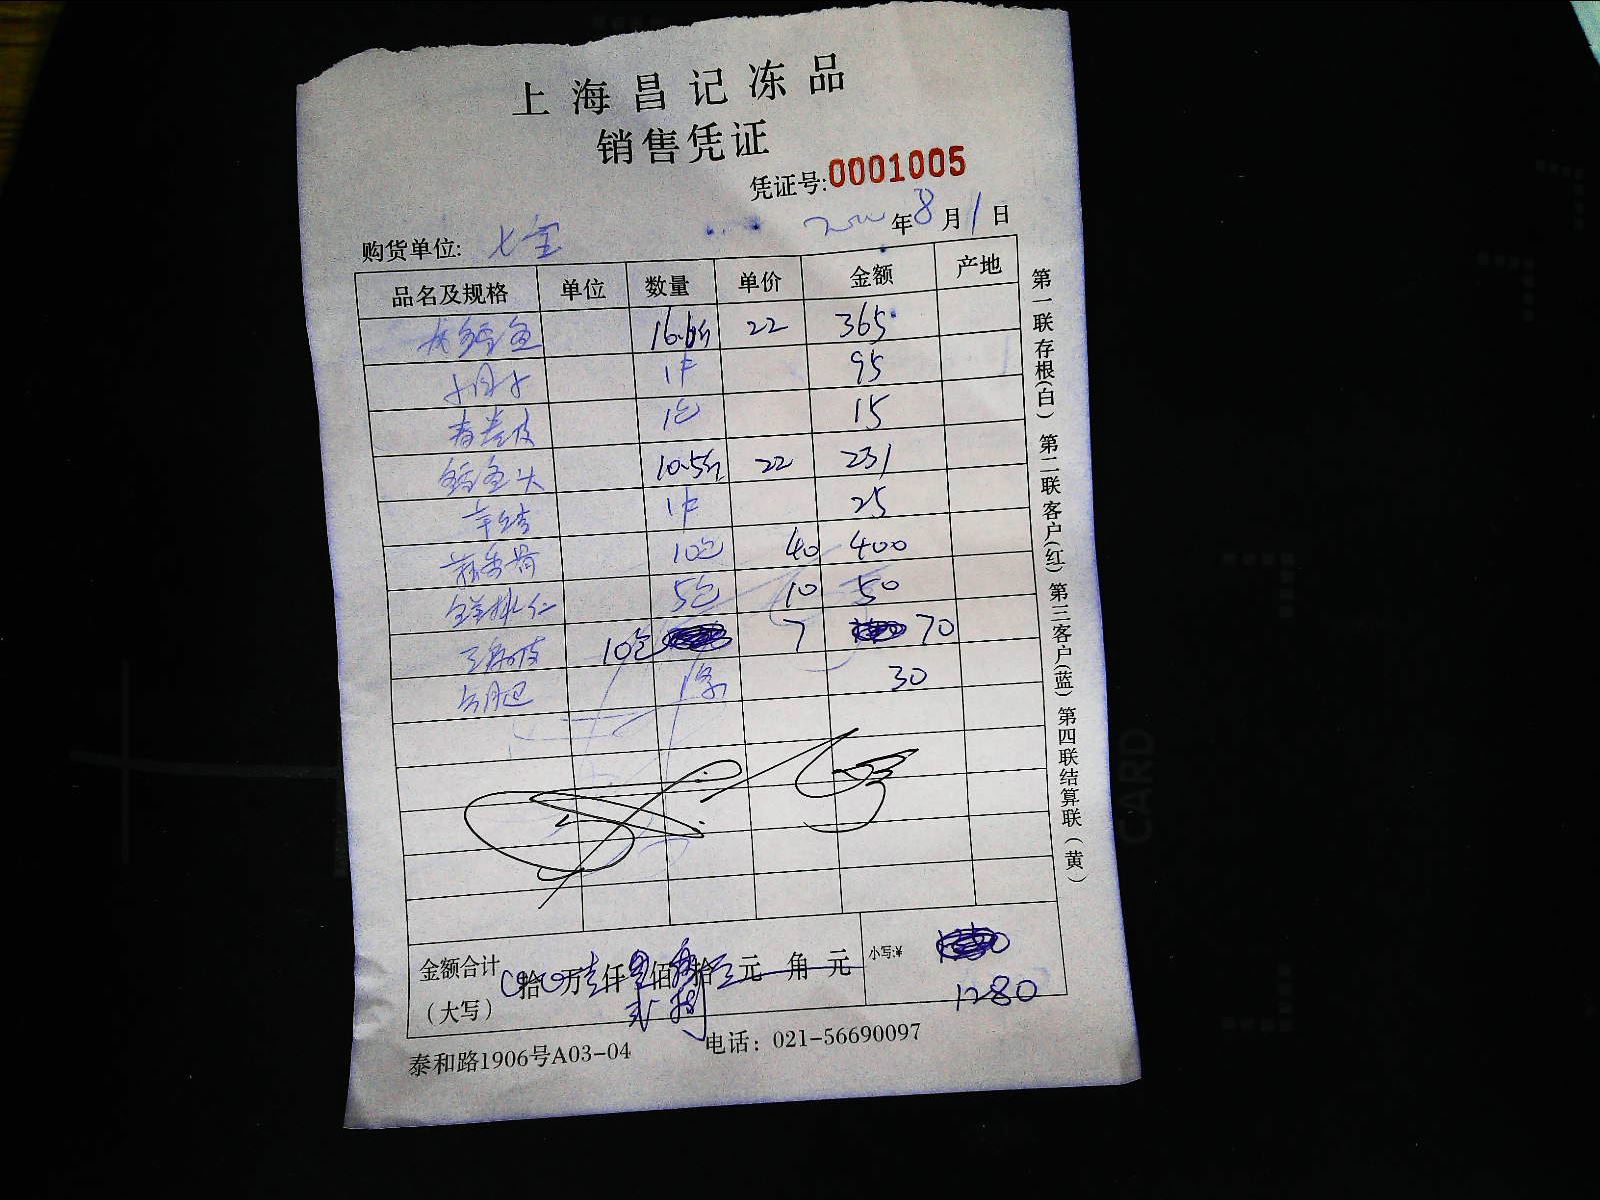 上海昌记冻品
销售凭证
凭证号:0001005
年8月1日
购货单位: 七宝
品名及规格 单位 数量 单价 金额 产地
16.6斤 22 365
1件 95
春卷皮 1包 15
鱼头 10.5斤 22 231
1件 25
10包 40 400
5包 10 50
10包 7 70
1条 30
金额合计 拾 万 仟 佰 拾 元 角 元 小写:¥
(大写) 1280
泰和路1906号A03-04 电话: 021-56690097
第一联存根(白) 第二联客户(红) 第三客户(蓝) 第四联结算联(黄)